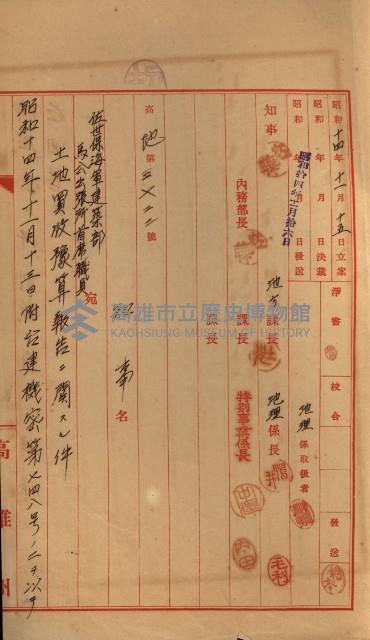 昭和十四年十一月十五日立案
淨書
校合
發送
昭和 年 月 日決裁
地理係取扱者
昭和 年 月 日發送
昭和拾四年十一月拾六日
知事
地方課長
地理係長
内務部長
課長
特別事務係長
課長
高地第三七二二號
知事名
佐世保海軍建築部
馬公出張所首席部員宛
土地買收豫算報告ニ關スル件
昭和十四年十一月十三日附台建機密第七四八號ノ二ヲ以テ
高雄州
高雄市立歷史博物館
KAOHSIUNG MUSEUM OF HISTORY